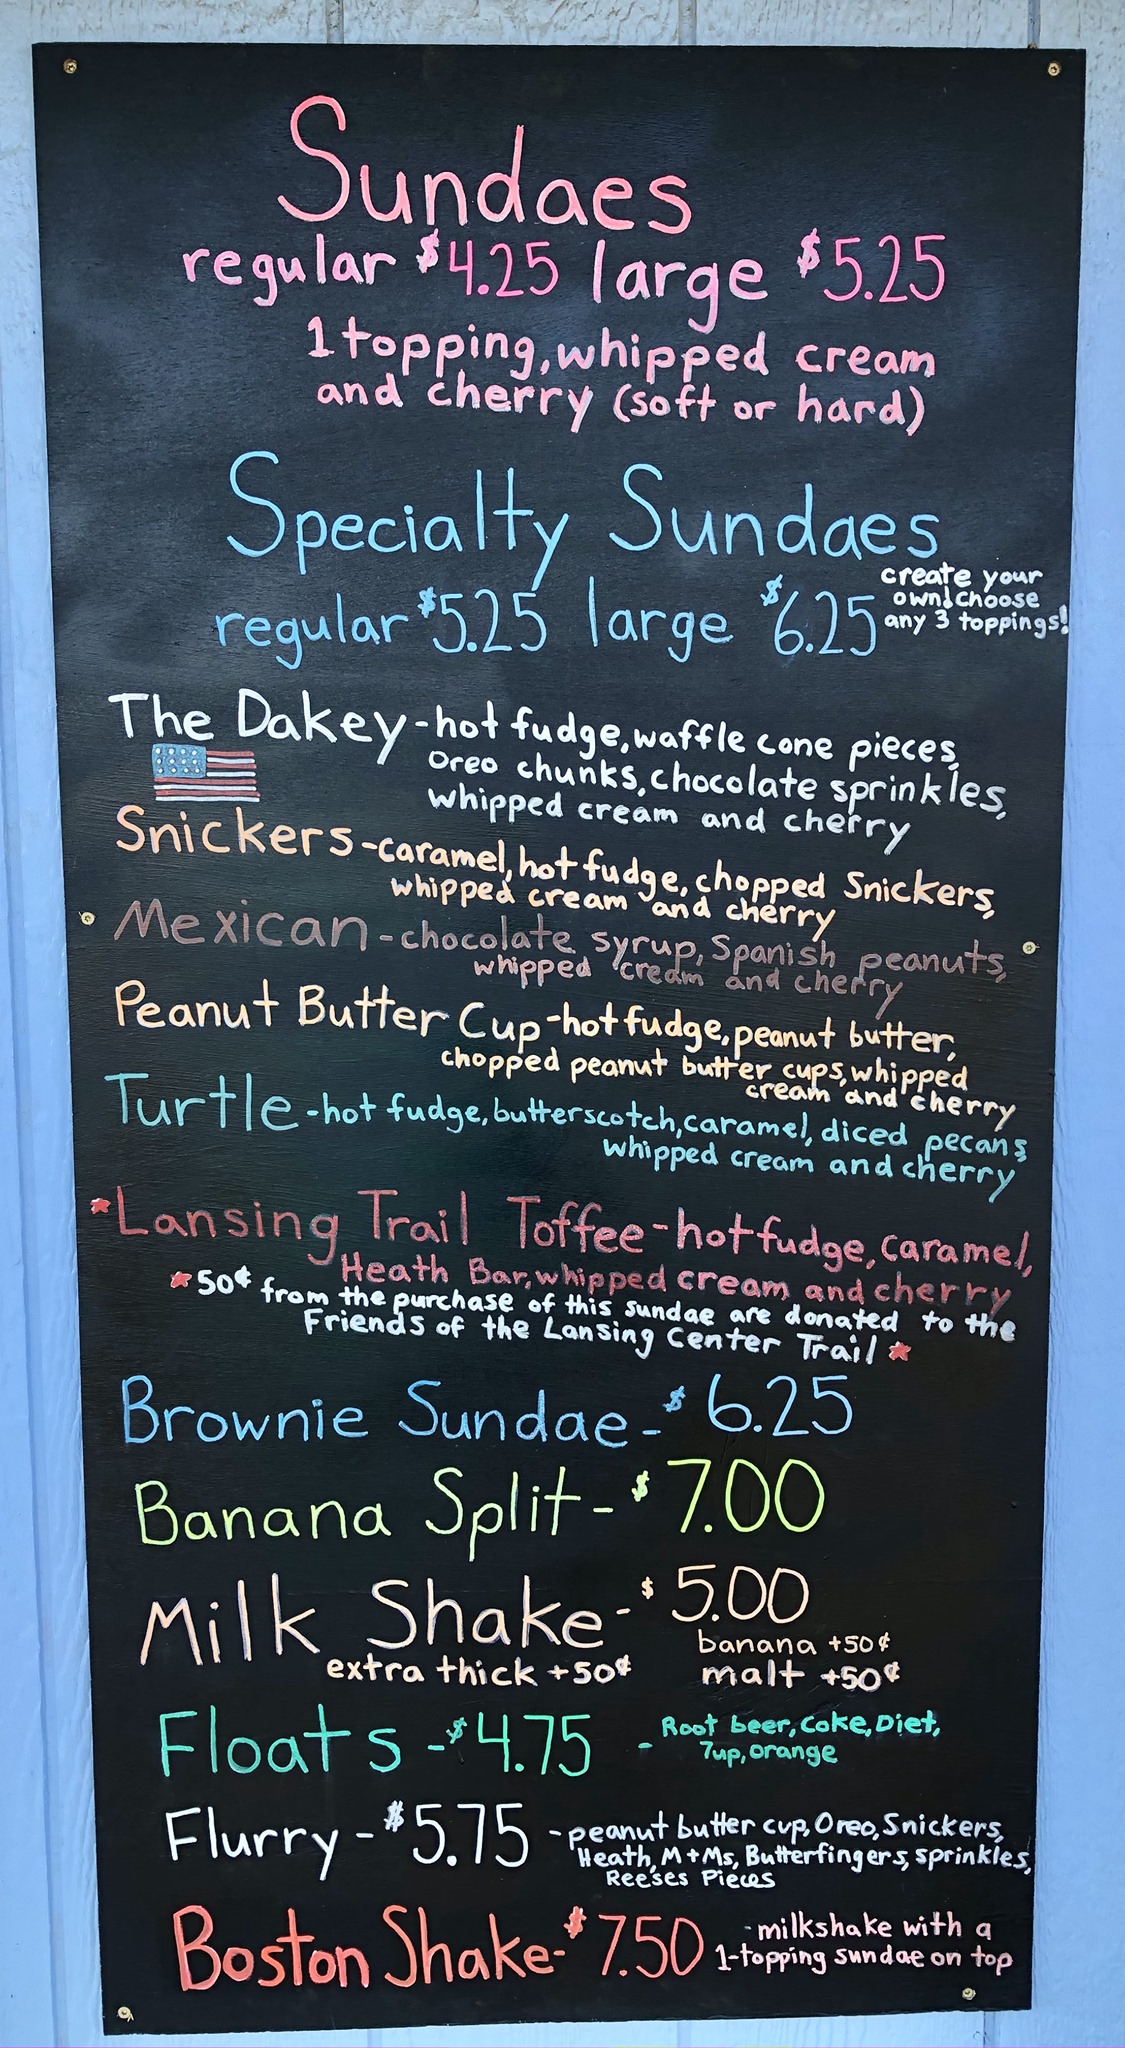 Sundaes
regular $4.25 large $5.25
1 topping, whipped cream
and cherry (soft or hard)
Specialty Sundaes
regular $5.25 large $6.25
create your
own! choose
any 3 toppings!
The Dakey - hot fudge, waffle cone pieces,
Oreo chunks, chocolate sprinkles,
whipped cream and cherry
Snickers - caramel, hot fudge, chopped Snickers,
whipped cream and cherry
Mexican - chocolate syrup, Spanish peanuts,
whipped cream and cherry
Peanut Butter Cup - hot fudge, peanut butter,
chopped peanut butter cups, whipped
cream and cherry
Turtle - hot fudge, butterscotch, caramel, diced pecans,
whipped cream and cherry
*Lansing Trail Toffee - hot fudge, caramel,
Heath Bar, whipped cream and cherry
*50¢ from the purchase of this sundae are donated to the
Friends of the Lansing Center Trail*
Brownie Sundae - $6.25
Banana Split - $7.00
Milk Shake - $5.00
extra thick +50¢
banana +50¢
malt +50¢
Floats - $4.75 - Root beer, Coke, Diet,
7up, orange
Flurry - $5.75 - peanut butter cup, Oreo, Snickers,
Heath, M+Ms, Butterfingers, sprinkles,
Reeses Pieces
Boston Shake - $7.50 - milkshake with a
1-topping sundae on top